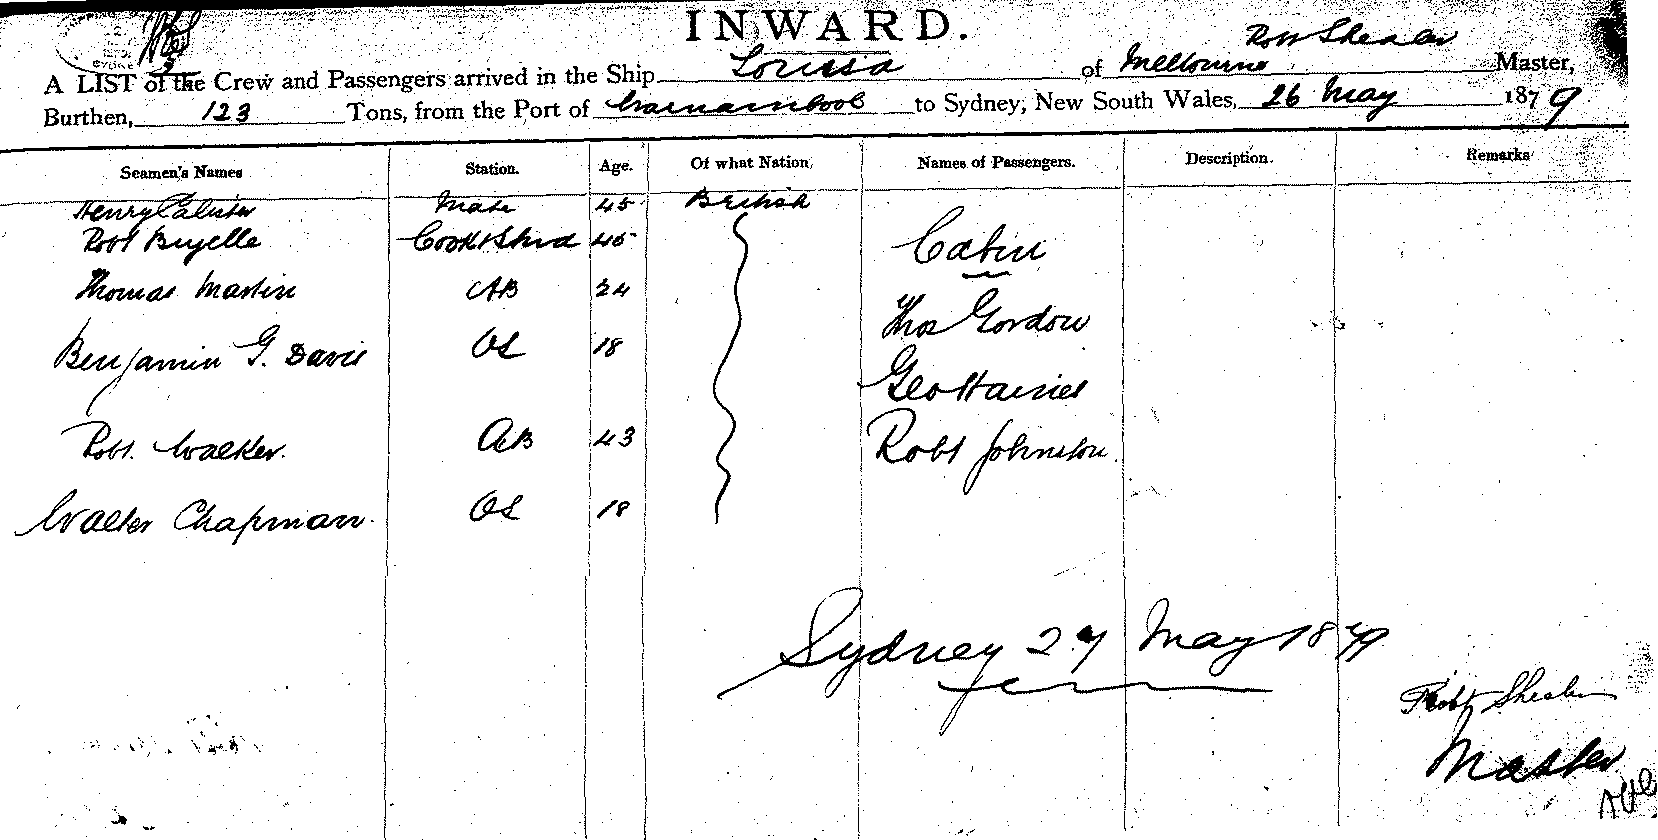 INWARD.
Robt Shearer
A LIST of the Crew and Passengers arrived in the Ship Lorissa of Melbourne Master,
Burthen, 123 Tons, from the Port of Warnambool to Sydney, New South Wales, 26 May 1879
Seamen's Names Station. Age. Of what Nation. Names of Passengers. Description. Remarks
Henry Mate 45 British
Robt Cook & Stwd 45 Cabin
Thomas Martin AB 24
Thos Gordon
Benjamin G. Davis OS 18
Geo Haines
Robt. Walker. AB 43 Robt Johnston.
Walter Chapman. OS 18
Sydney 27 May 1879
Robt Shearer
Master